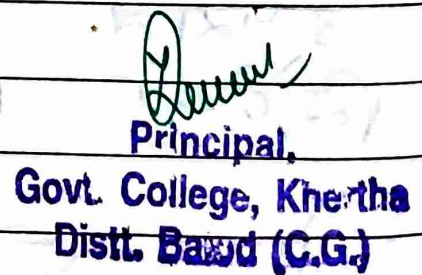 Principal,
Govt. College, Khertha
Distt. Balod (C.G.)